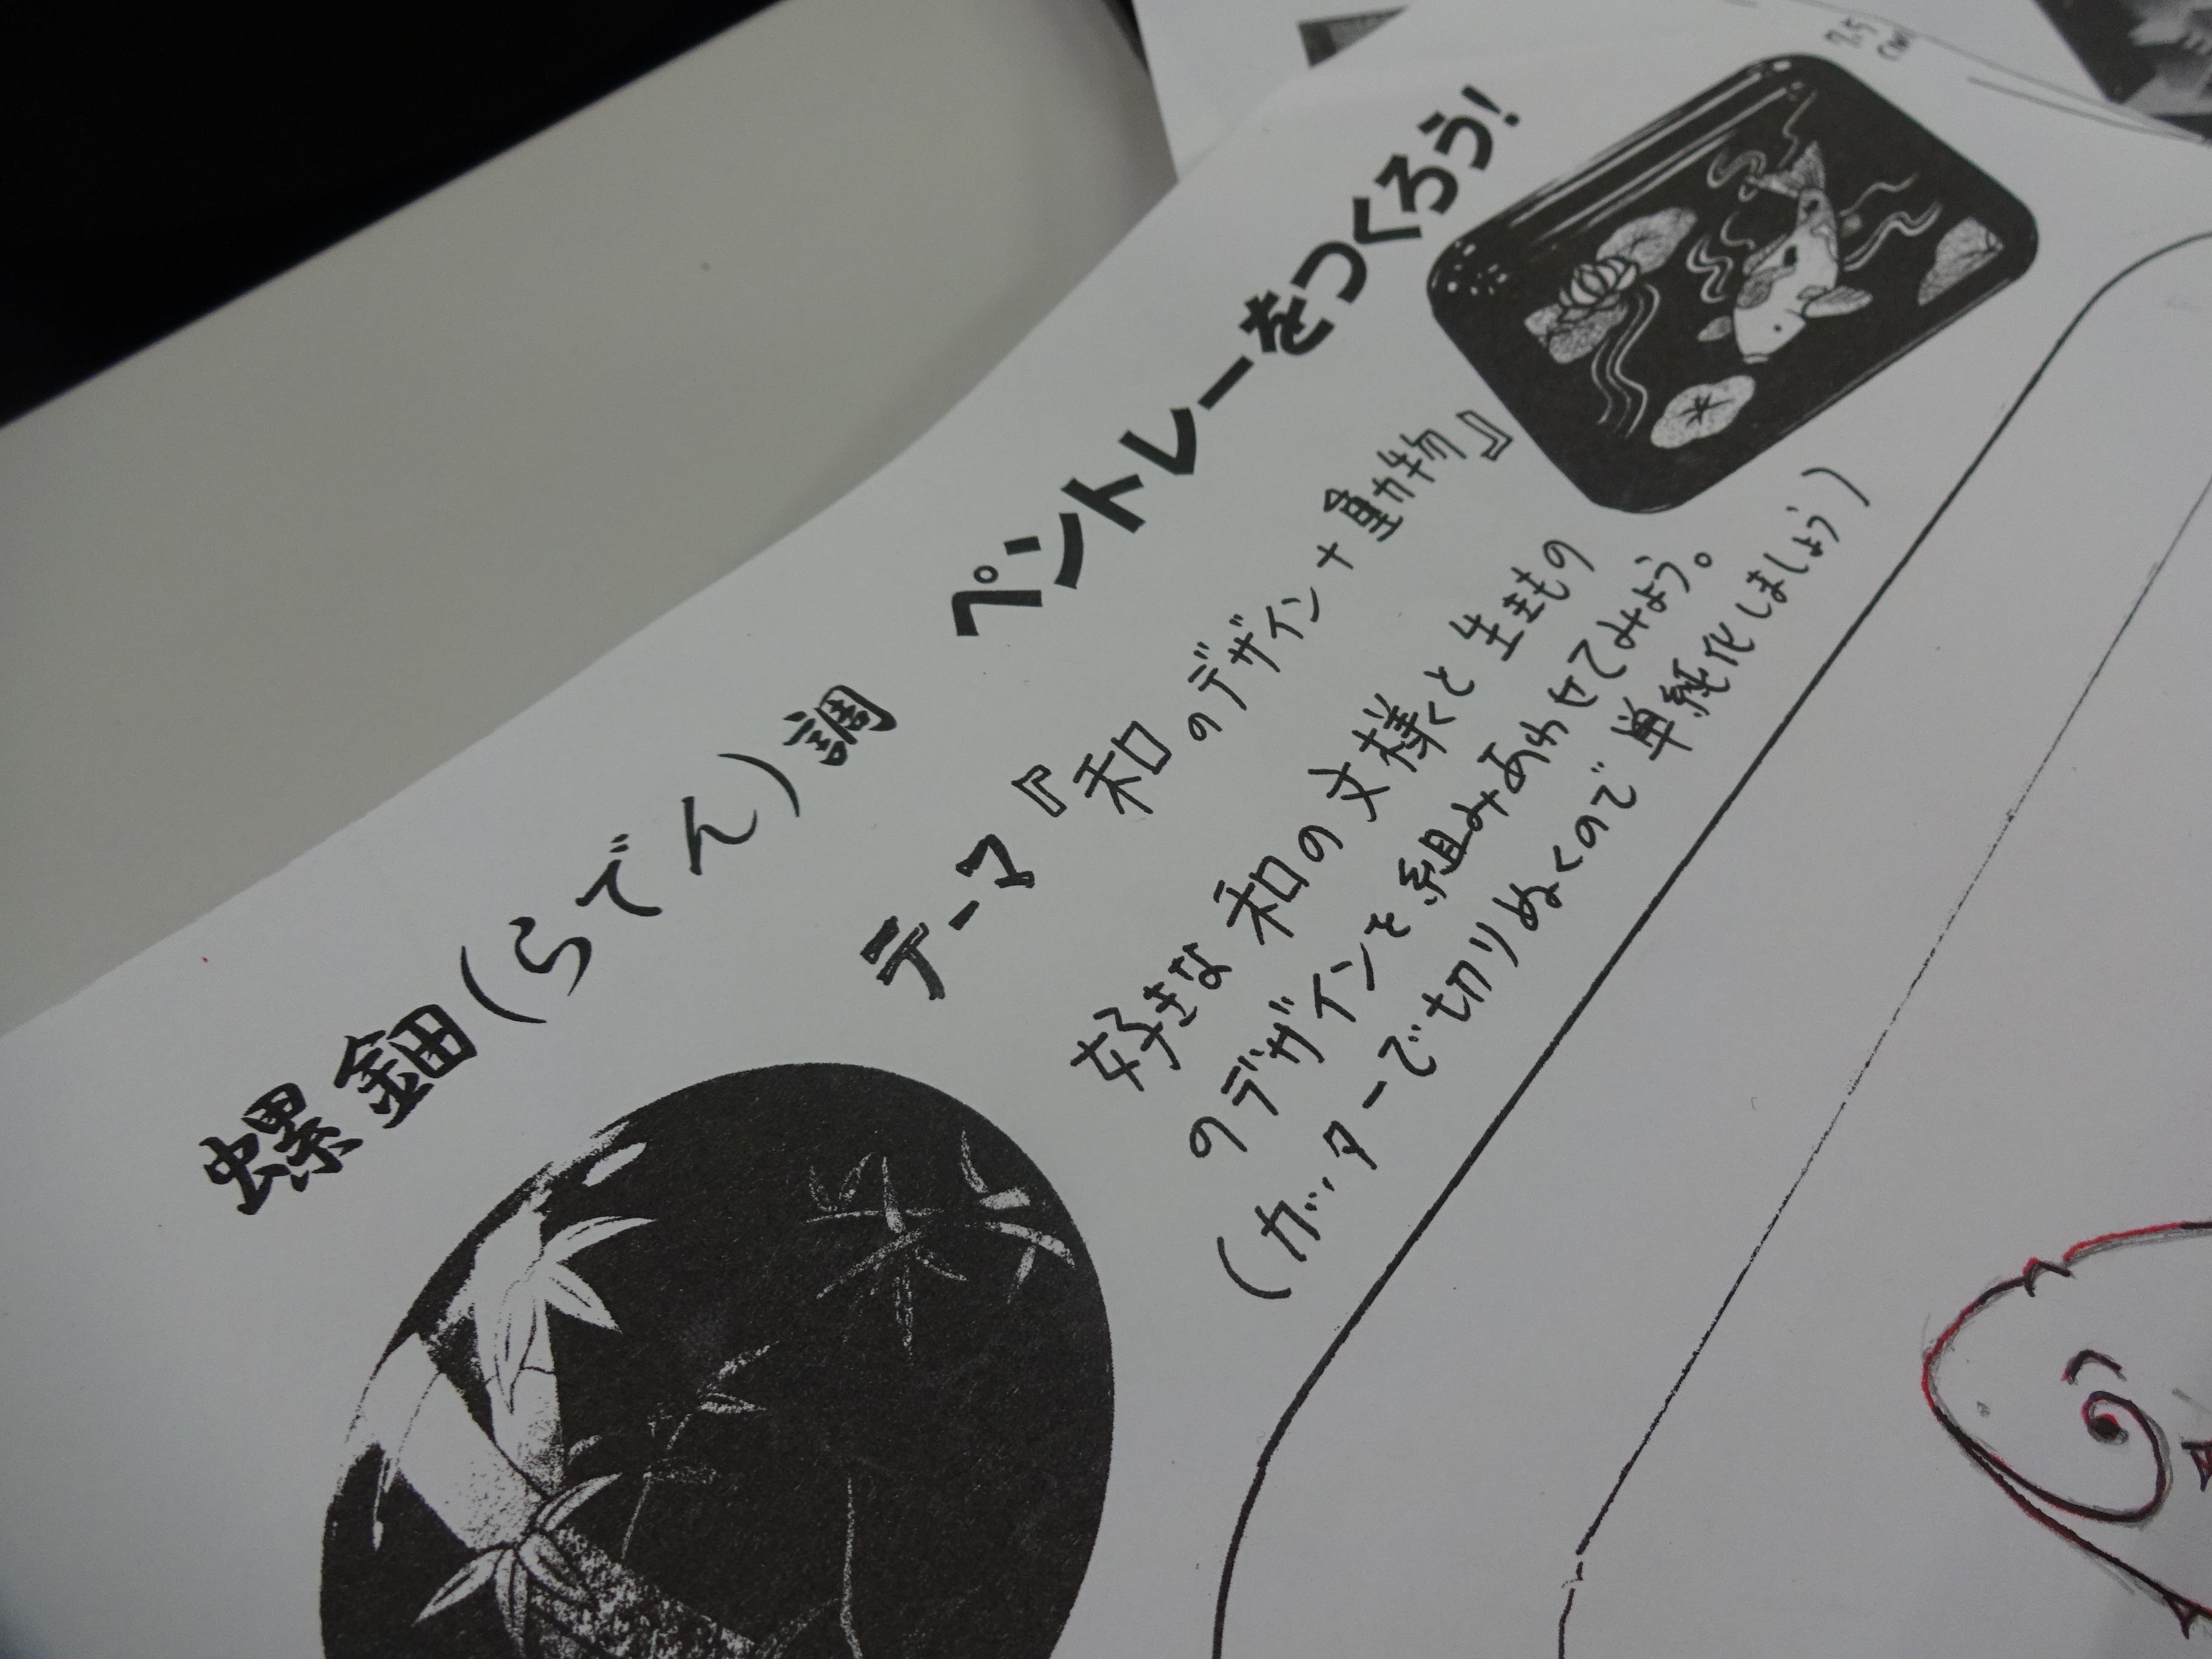 螺鈿(らでん)調 ペントレーをつくろう!
テーマ『和のデザイン+動物』
好きな和の文様くと生きもの
のデザインを組みあわせてみよう。
(カッターで切りぬくので単純化しましょう)
7.5
cm